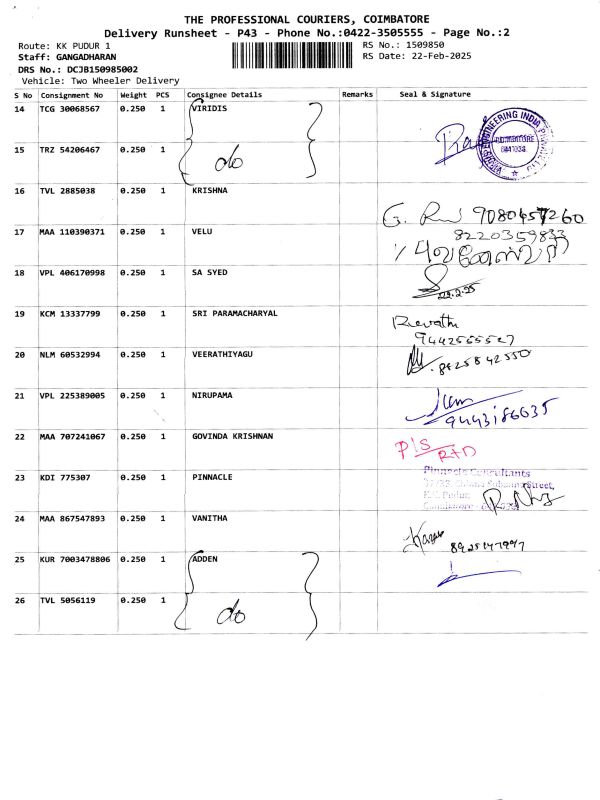 THE PROFESSIONAL COURIERS, COIMBATORE
Delivery Runsheet - P43 - Phone No.:0422-3505555 - Page No.:2
Route: KK PUDUR 1 RS No.: 1509850
Staff: GANGADHARAN RS Date: 22-Feb-2025
DRS No.: DCJB150985002
Vehicle: Two Wheeler Delivery
S No Consignment No Weight PCS Consignee Details Remarks Seal & Signature
14 TCG 30068567 0.250 1 VIRIDIS
15 TRZ 54206467 0.250 1 do
16 TVL 2885038 0.250 1 KRISHNA
17 MAA 110390371 0.250 1 VELU 8220359833
18 VPL 406170998 0.250 1 SA SYED
19 KCM 13337799 0.250 1 SRI PARAMACHARYAL Revathi
20 NLM 60532994 0.250 1 VEERATHIYAGU 8925842550
21 VPL 225389005 0.250 1 NIRUPAMA 9443186635
22 MAA 707241067 0.250 1 GOVINDA KRISHNAN P/S
23 KDI 775307 0.250 1 PINNACLE Pinnacle Consultants
24 MAA 867547893 0.250 1 VANITHA
25 KUR 7003478806 0.250 1 ADDEN
26 TVL 5056119 0.250 1 do